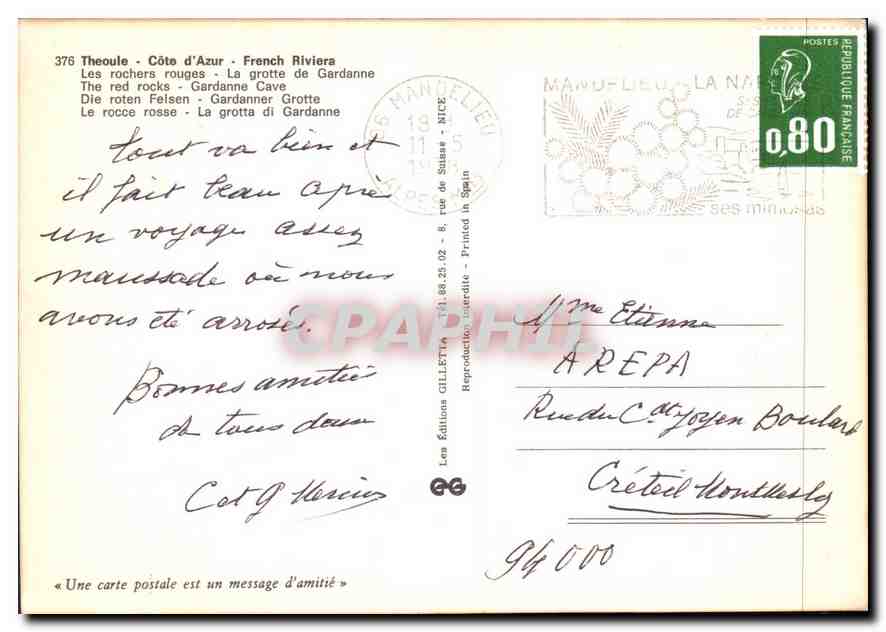 376 Theoule - Côte d'Azur - French Riviera
Les rochers rouges - La grotte de Gardanne
The red rocks - Gardanne Cave
Die roten Felsen - Gardanner Grotte
Le rocce rosse - La grotta di Gardanne
tout va bien et
il fait beau après
un voyage assez
maussade où nous
avons été arrosés.
Bonnes amitiés
de tous deux
Cat G
« Une carte postale est un message d'amitié »
Les Éditions GILLETTA - Tél. 88.25.02 - 8, rue de Suisse - NICE
Reproduction interdite - Printed in Spain
EG
06 MANDELIEU
ALPES
MANDELIEU LA NAP
ses mimosas
POSTES
REPUBLIQUE FRANÇAISE
0,80
Mme Etienne
AREPA
Rue du Cdt Joyen Boulard
Créteil Montmesly
94000
CPAPHIL